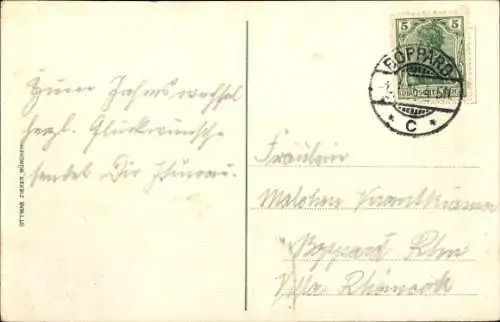 Zum Jahreswechsel
herzl. Glückwünsche
sendet Dir
OTTMAR ZIEHER, MÜNCHEN
5 5
BOPPARD
C
Fräulein
Malchen
Boppard Rhn
Villa